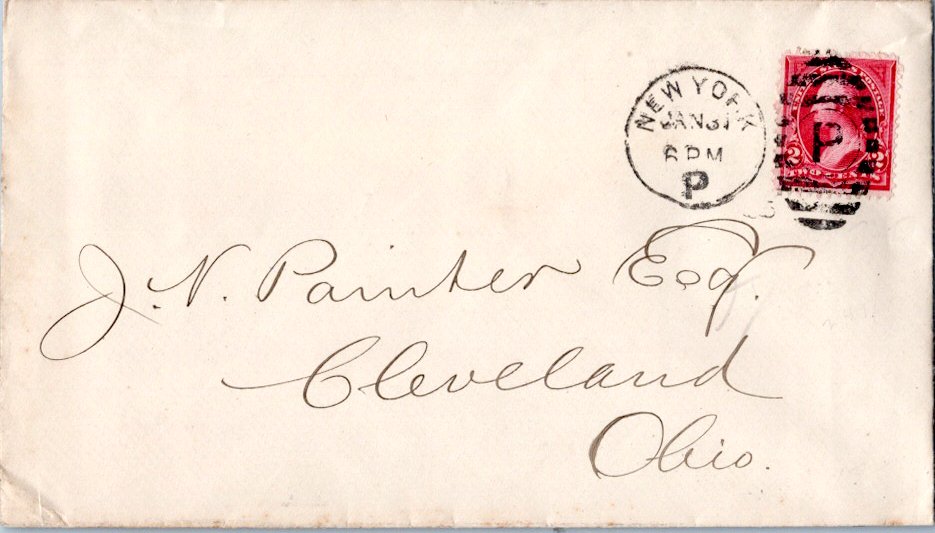 NEW YORK
JAN 31
6 PM
P
P
2 2
TWO CENTS
J. V. Painter Esq.
Cleveland
Ohio.